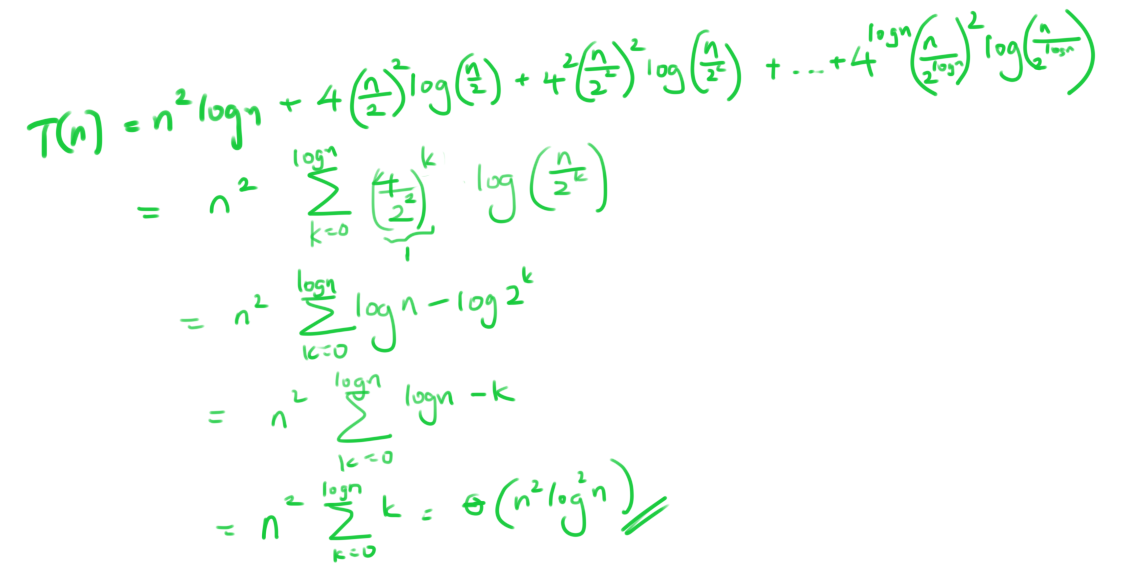 T(n) = n² log n + 4(n/2)² log(n/2) + 4²(n/2²)² log(n/2²) + ... + 4^(log n) (n/2^(log n))² log(n/2^(log n))
= n² ∑_{k=0}^{log n} (4/2²)^k log(n/2^k)
1
= n² ∑_{k=0}^{log n} log n − log 2^k
= n² ∑_{k=0}^{log n} log n − k
= n² ∑_{k=0}^{log n} k = Θ(n² log² n)